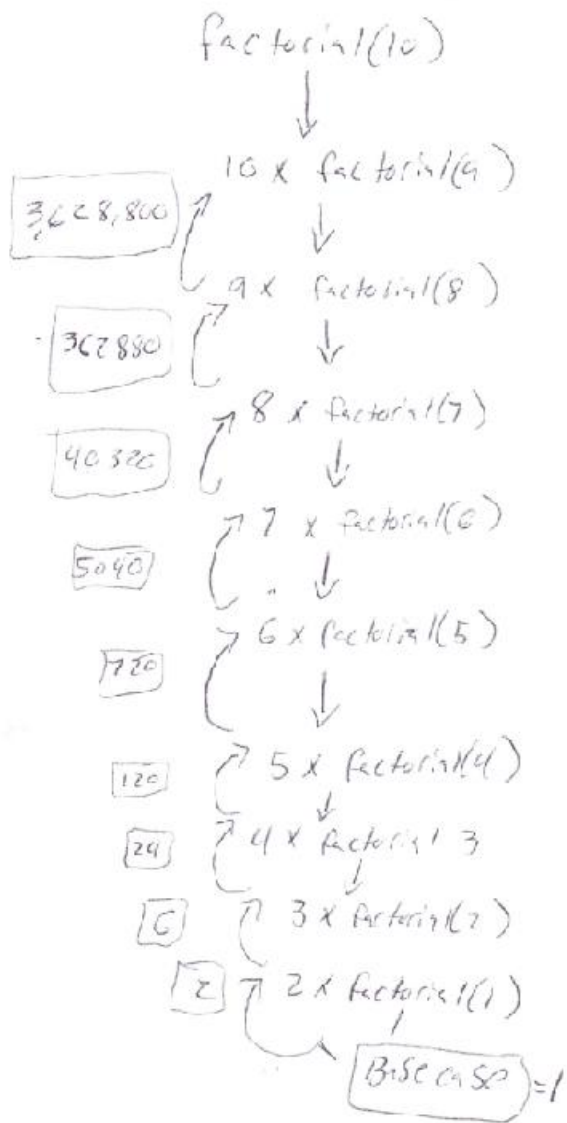 factorial(10)
10 x factorial(9)
3,628,800
9 x factorial(8)
362880
8 x factorial(7)
40320
7 x factorial(6)
5040
6 x factorial(5)
720
5 x factorial(4)
120
4 x factorial 3
24
3 x factorial(2)
6
2 x factorial(1)
2
Base case = 1